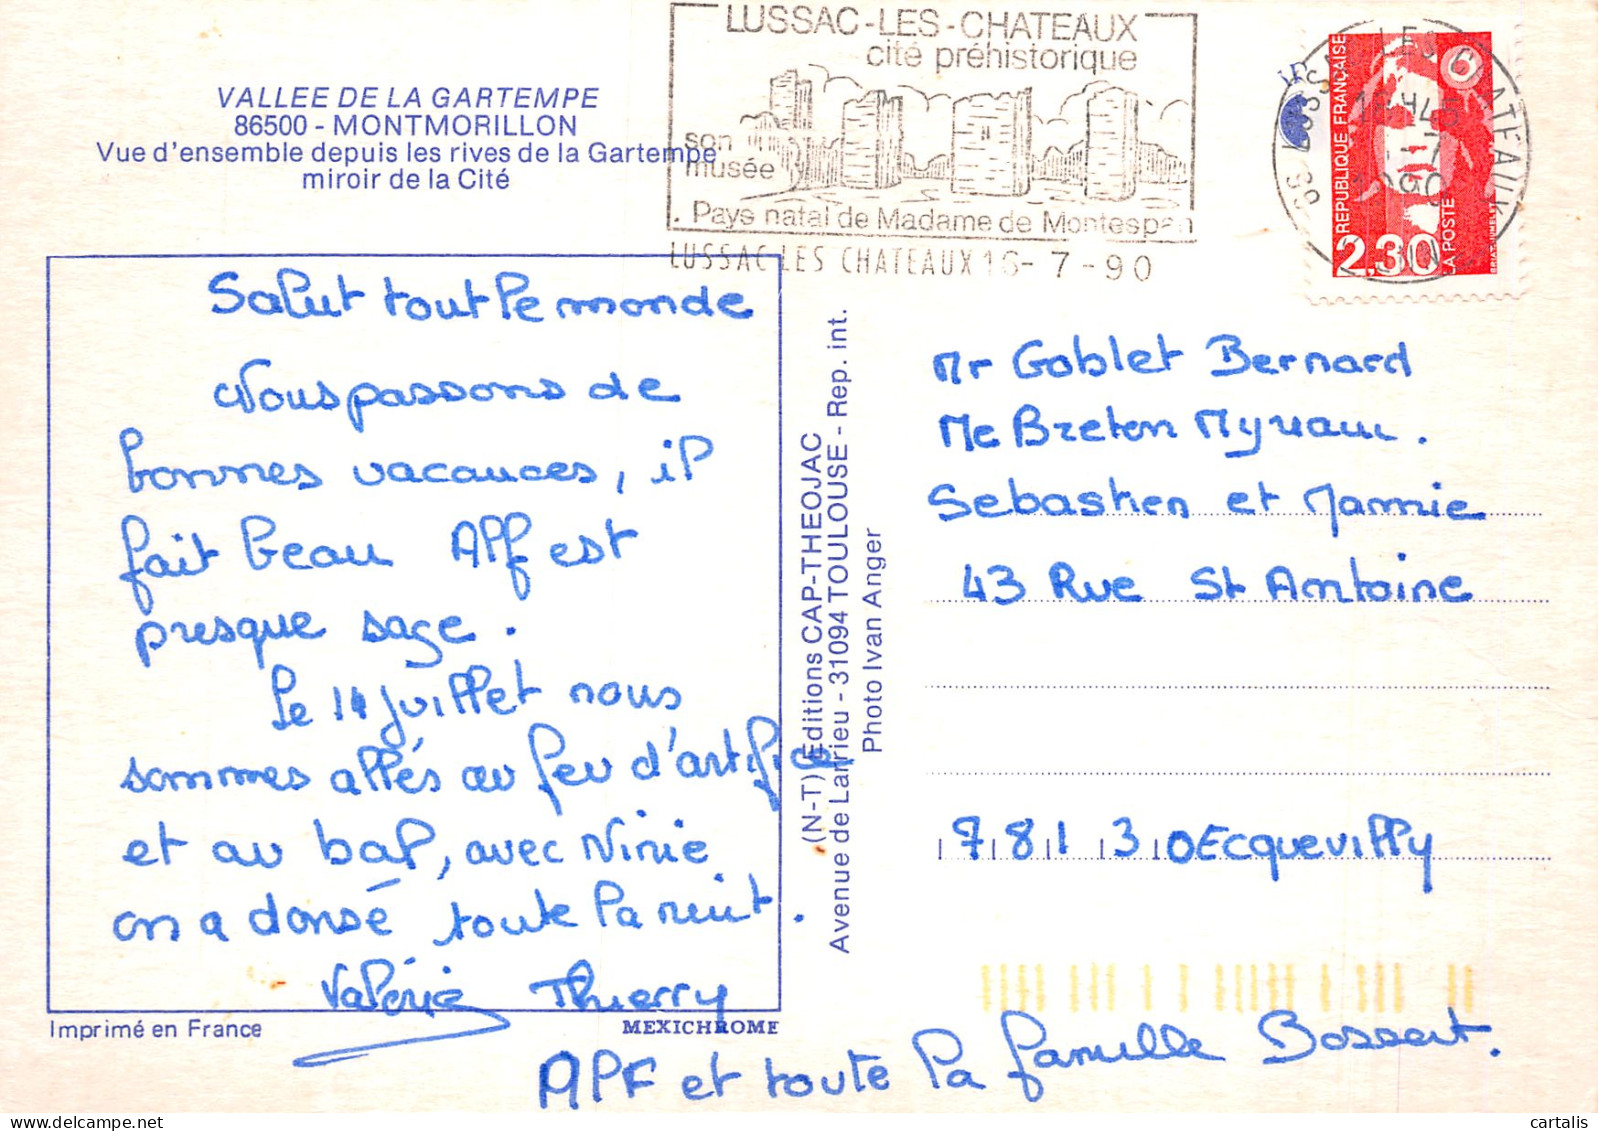 VALLEE DE LA GARTEMPE
86500 - MONTMORILLON
Vue d'ensemble depuis les rives de la Gartempe
miroir de la Cité
LUSSAC-LES-CHATEAUX
cité préhistorique
son
musée
Pays natal de Madame de Montespan
LUSSAC LES CHATEAUX 16-7-90
REPUBLIQUE FRANÇAISE
2,30
LA POSTE
Salut tout le monde
Nous passons de
bonnes vacances, il
fait beau Alf est
presque sage.
Le 14 juillet nous
sommes allés au feu d'artifice
et au bal, avec Ninie
on a dansé toute la nuit.
Valérie Thierry
ALF et toute la famille Bossert.
(N-T) Editions CAP-THEOJAC
Avenue de Larrieu - 31094 TOULOUSE - Rep. int.
Photo Ivan Anger
Mr Goblet Bernard
Me Breton Myriam.
Sebastien et Mamie
43 Rue St Antoine
78130 Ecquevilly
Imprimé en France
MEXICHROME
cartalis